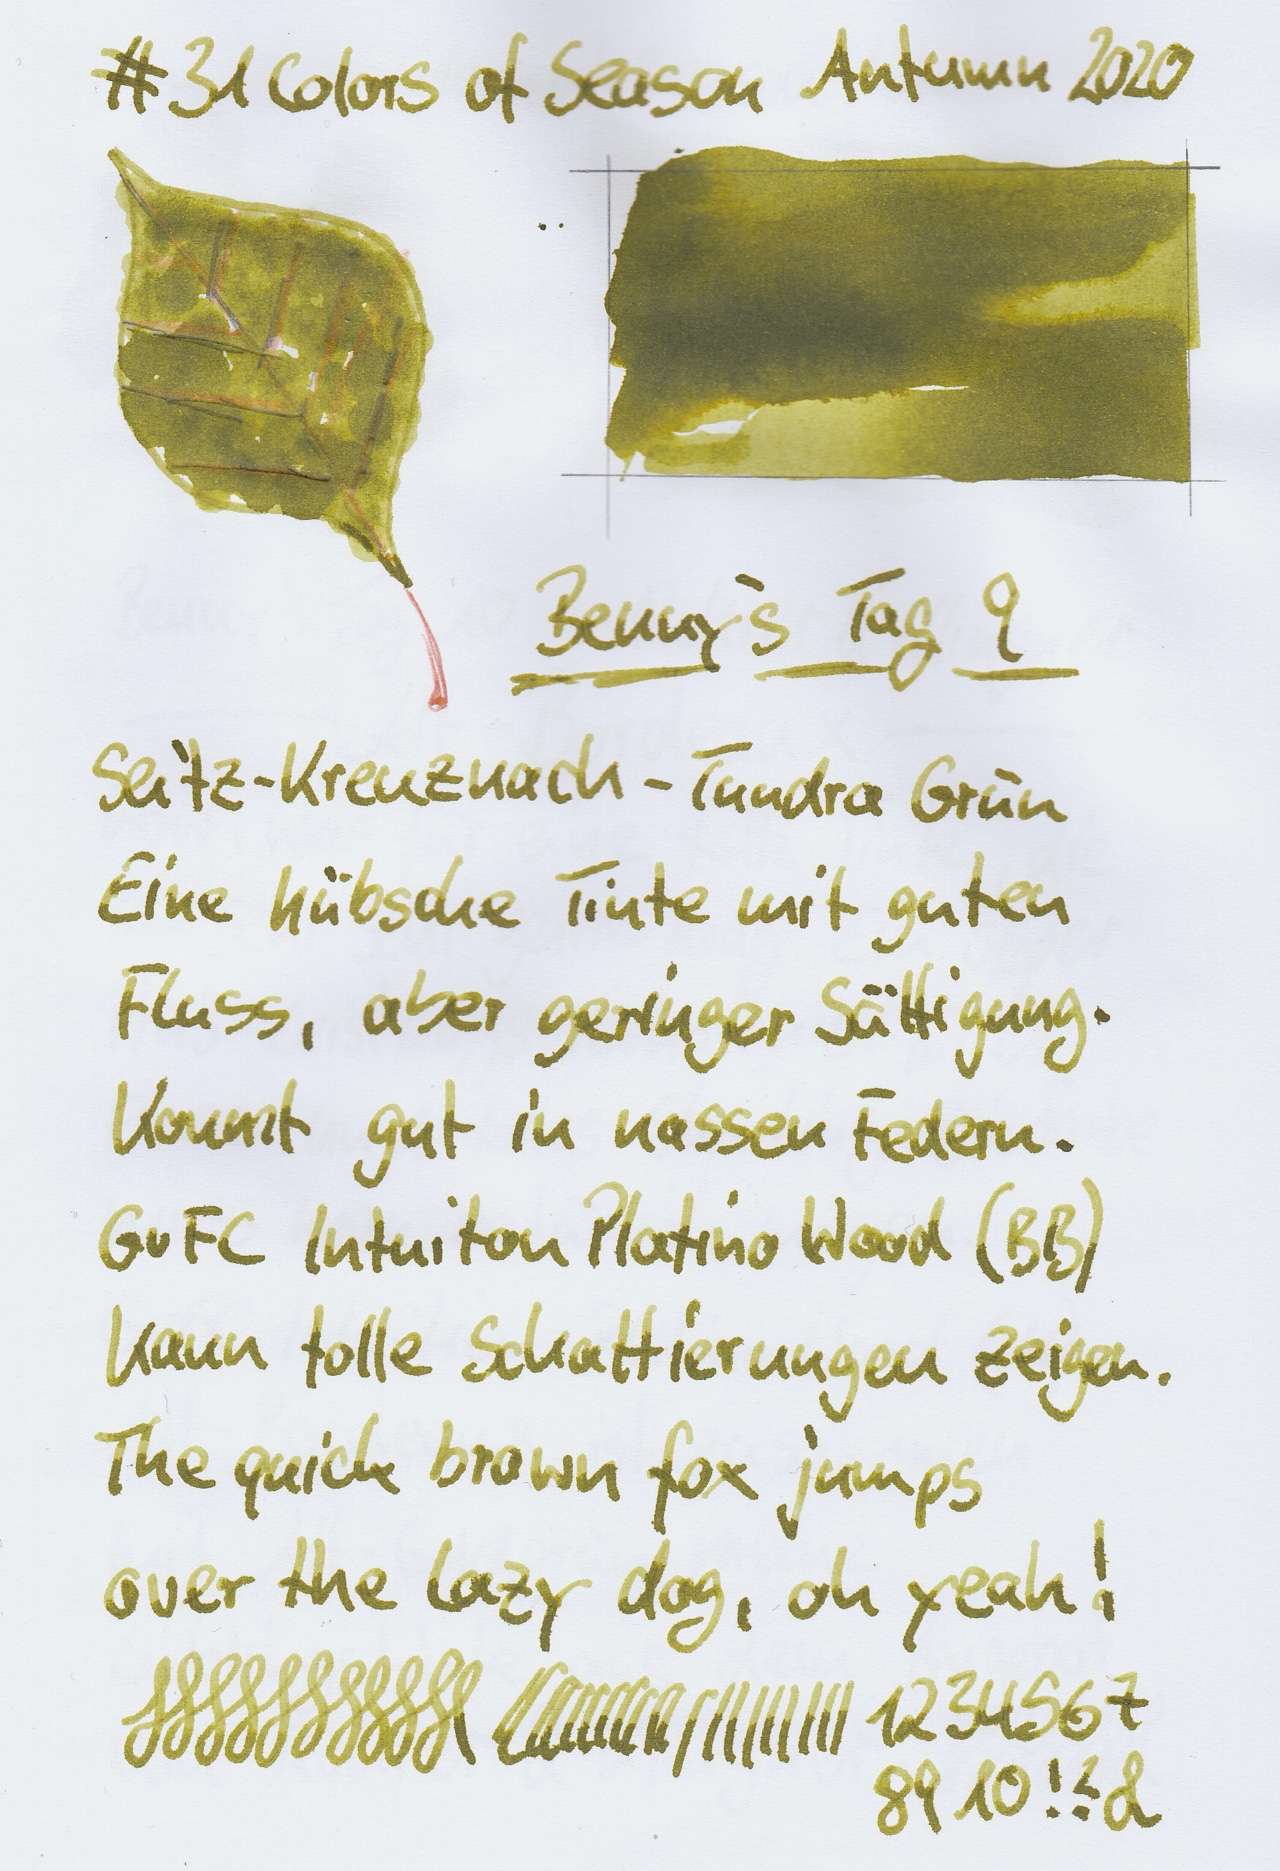 #31 Colors of Season Autumn 2020
Benny's Tag 9
Seitz-Kreuznach - Tundra Grün
Eine hübsche Tinte mit guten
Fluss, aber geringer Sättigung.
Kommt gut in nassen Federn.
GvFC Intuiton Platino Wood (BB)
kann tolle Schattierungen zeigen.
The quick brown fox jumps
over the lazy dog, oh yeah!
1234567
89 10 !?&